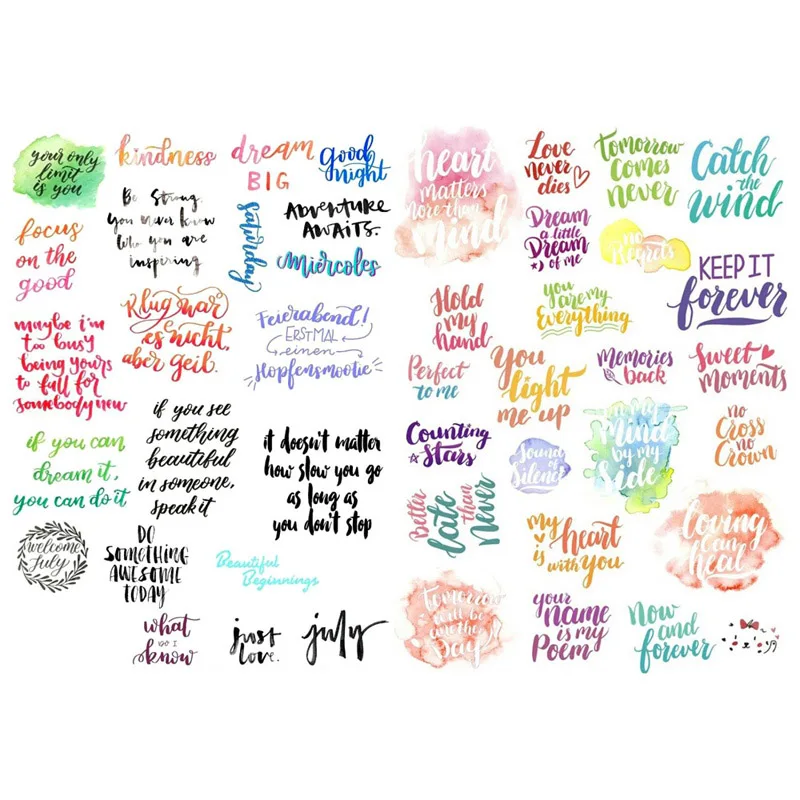 your only
limit
is you
kindness
dream
BIG
good
night
Be Strong.
You never know
who you are
inspiring
Saturday
ADVENTURE
AWAITS.
Miércoles
focus
on the
good
Klug war
es nicht,
aber geil.
Feierabend!
ERSTMAL
einen
Hopfensmootie
maybe i'm
too busy
being yours
to fall for
somebody new
if you see
something
beautiful
in someone,
speak it
it doesn't matter
how slow you go
as long as
you don't stop
if you can
dream it,
you can do it
welcome
July
DO
SOMETHING
AWESOME
TODAY
Beautiful
Beginnings
what
DO I
know
just
love.
july
heart
matters
more than
mind
Love
never
dies
Tomorrow
comes
never
Catch
the
wind
Dream
a little
Dream
of me
no
Regrets
KEEP IT
forever
Hold
my
hand
you are my
Everything
Perfect
to me
You
light
me up
Memories
back
Sweet
moments
Counting
Stars
Sound
of
Silence
in my
Mind
by my
Side
no
Cross
no
Crown
Better
late
than
Never
My
heart
is
with you
Loving
can
heal
Tomorrow
will be
another
Day
your
name
is my
Poem
Now
and
forever